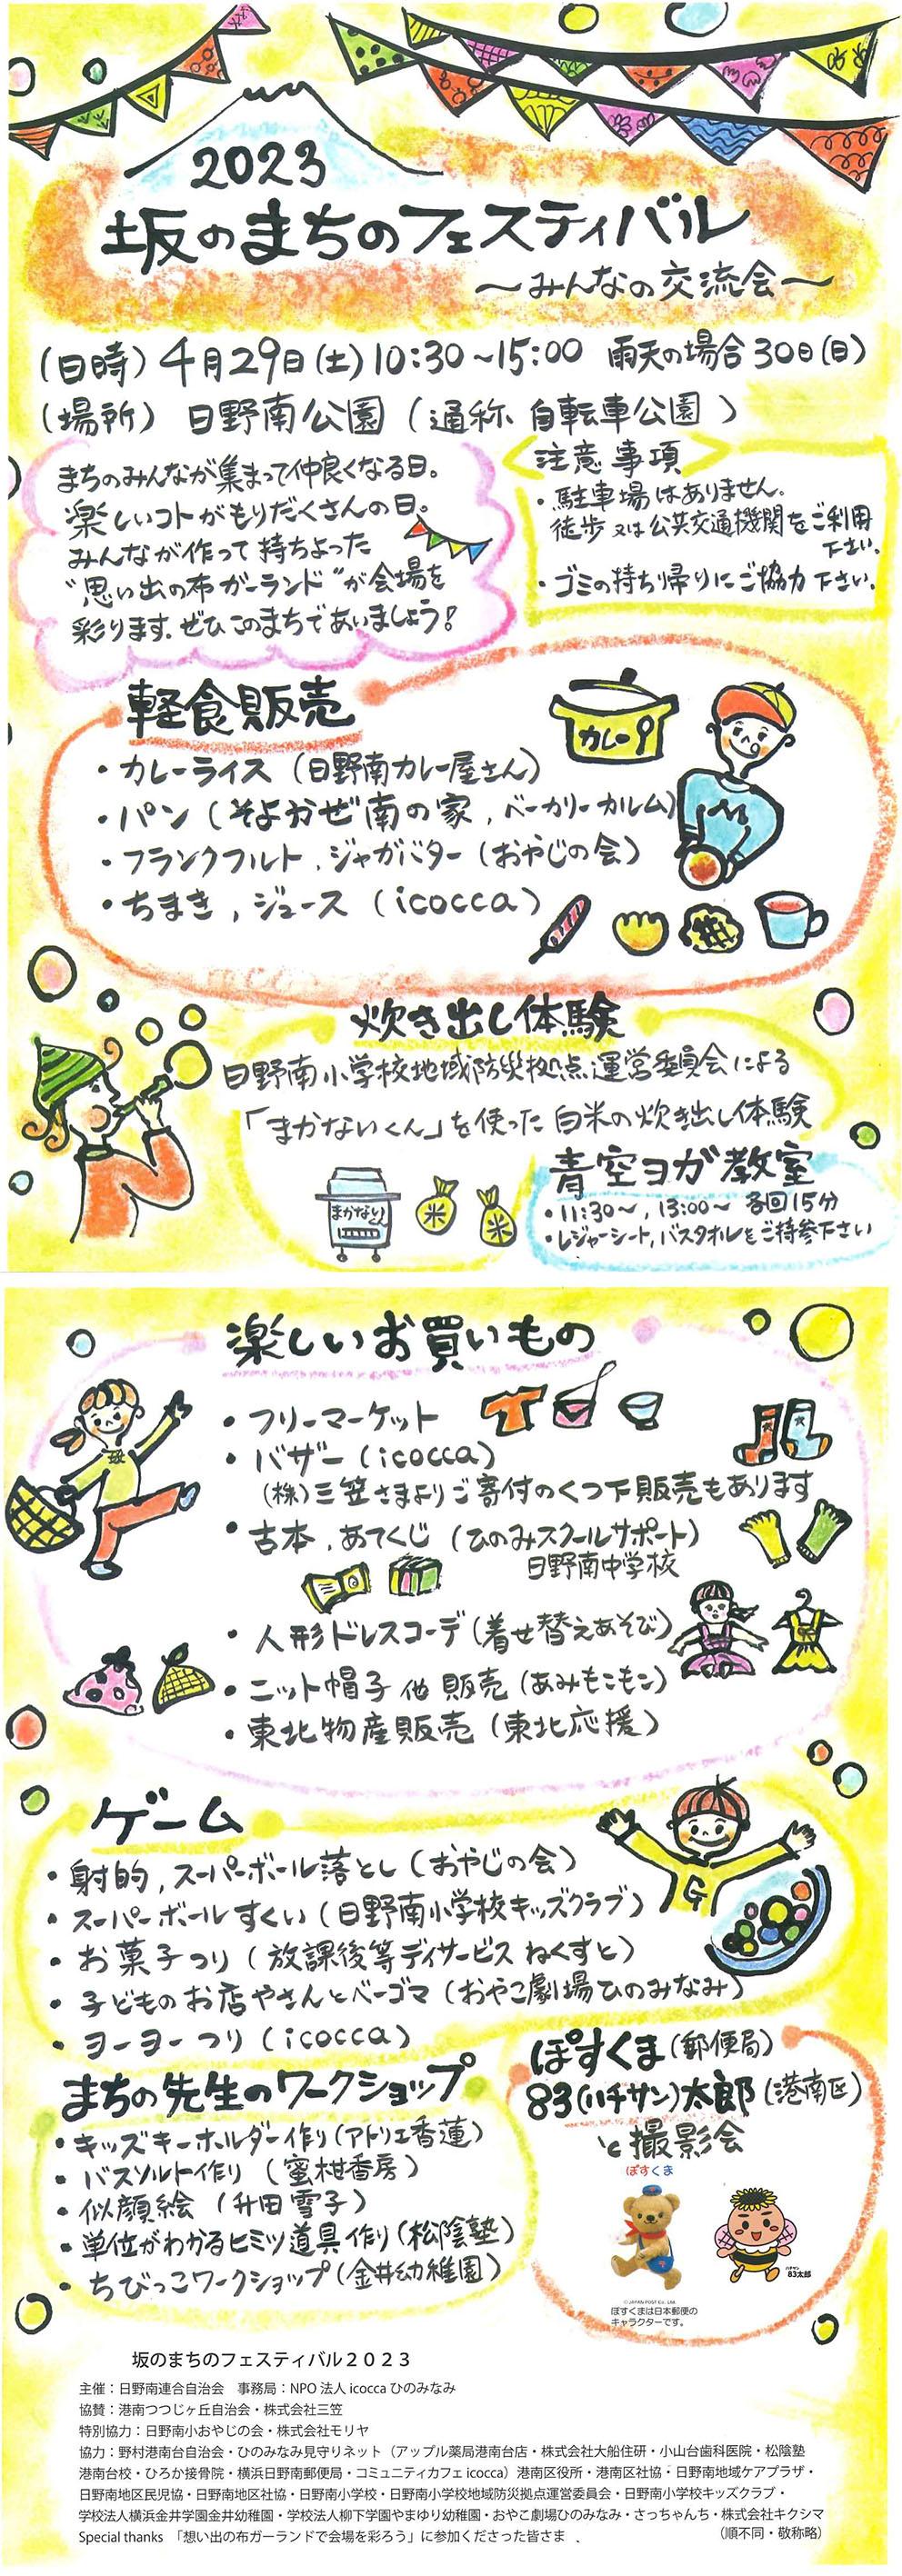 2023
坂のまちのフェスティバル
〜みんなの交流会〜
(日時) 4月29日(土)10:30~15:00 雨天の場合30日(日)
(場所) 日野南公園 (通称 自転車公園 )
まちのみんなが集まって仲良くなる日。
楽しいコトがもりだくさんの日。
みんなが作って持ちよった
"思い出の布ガーランド"が会場を
彩ります。ぜひこのまちであいましょう!
注意事項
・駐車場はありません。
徒歩又は公共交通機関をご利用
下さい。
・ゴミの持ち帰りにご協力下さい。
軽食販売
・カレーライス (日野南カレー屋さん)
・パン (そよかぜ南の家, ベーカリーカルム)
・フランクフルト, ジャガバター (おやじの会)
・ちまき, ジュース (icocca)
カレー
炊き出し体験
日野南小学校地域防災拠点運営委員会による
「まかないくん」を使った 白米の炊き出し体験
まかないくん
米
米
青空ヨガ教室
・11:30〜, 13:00〜 各回15分
・レジャーシート, バスタオルをご持参下さい
楽しいお買いもの
・フリーマーケット
・バザー (icocca)
(株)三笠さまよりご寄付のくつ下販売もあります
・古本, あてくじ (ひのみスクールサポート)
日野南中学校
・人形ドレスコーデ(着せ替えあそび)
・ニット帽子 他 販売 (あみもこもこ)
・東北物産販売 (東北応援)
坂
ゲーム
・射的, スーパーボール落とし (おやじの会)
・スーパーボールすくい (日野南小学校キッズクラブ)
・お菓子つり (放課後等デイサービス ねくすと)
・子どものお店やさんとベーゴマ (おやこ劇場ひのみなみ)
・ヨーヨーつり (icocca)
G
まちの先生のワークショップ
・キッズキーホルダー作り(アトリエ香蓮)
・バスソルト作り (蜜柑香房)
・似顔絵 (升田雪子)
・単位がわかるヒミツ道具作り(松陰塾)
・ちびっこワークショップ(金井幼稚園)
ぽすくま(郵便局)
83(ハチサン)太郎(港南区)
と撮影会
ぽすくま
©JAPAN POST Co., Ltd.
ぽすくまは日本郵便の
キャラクターです。
83太郎
坂のまちのフェスティバル2023
主催:日野南連合自治会 事務局:NPO法人 icocca ひのみなみ
協賛:港南つつじヶ丘自治会・株式会社三笠
特別協力:日野南小おやじの会・株式会社モリヤ
協力:野村港南台自治会・ひのみなみ見守りネット(アップル薬局港南台店・株式会社大船住研・小山台歯科医院・松陰塾
港南台校・ひろか接骨院・横浜日野南郵便局・コミュニティカフェ icocca)港南区役所・港南区社協・日野南地域ケアプラザ・
日野南地区民児協・日野南地区社協・日野南小学校・日野南小学校地域防災拠点運営委員会・日野南小学校キッズクラブ・
学校法人横浜金井学園金井幼稚園・学校法人柳下学園やまゆり幼稚園・おやこ劇場ひのみなみ・さっちゃんち・株式会社キクシマ
Special thanks 「想い出の布ガーランドで会場を彩ろう」に参加くださった皆さま 、 (順不同・敬称略)